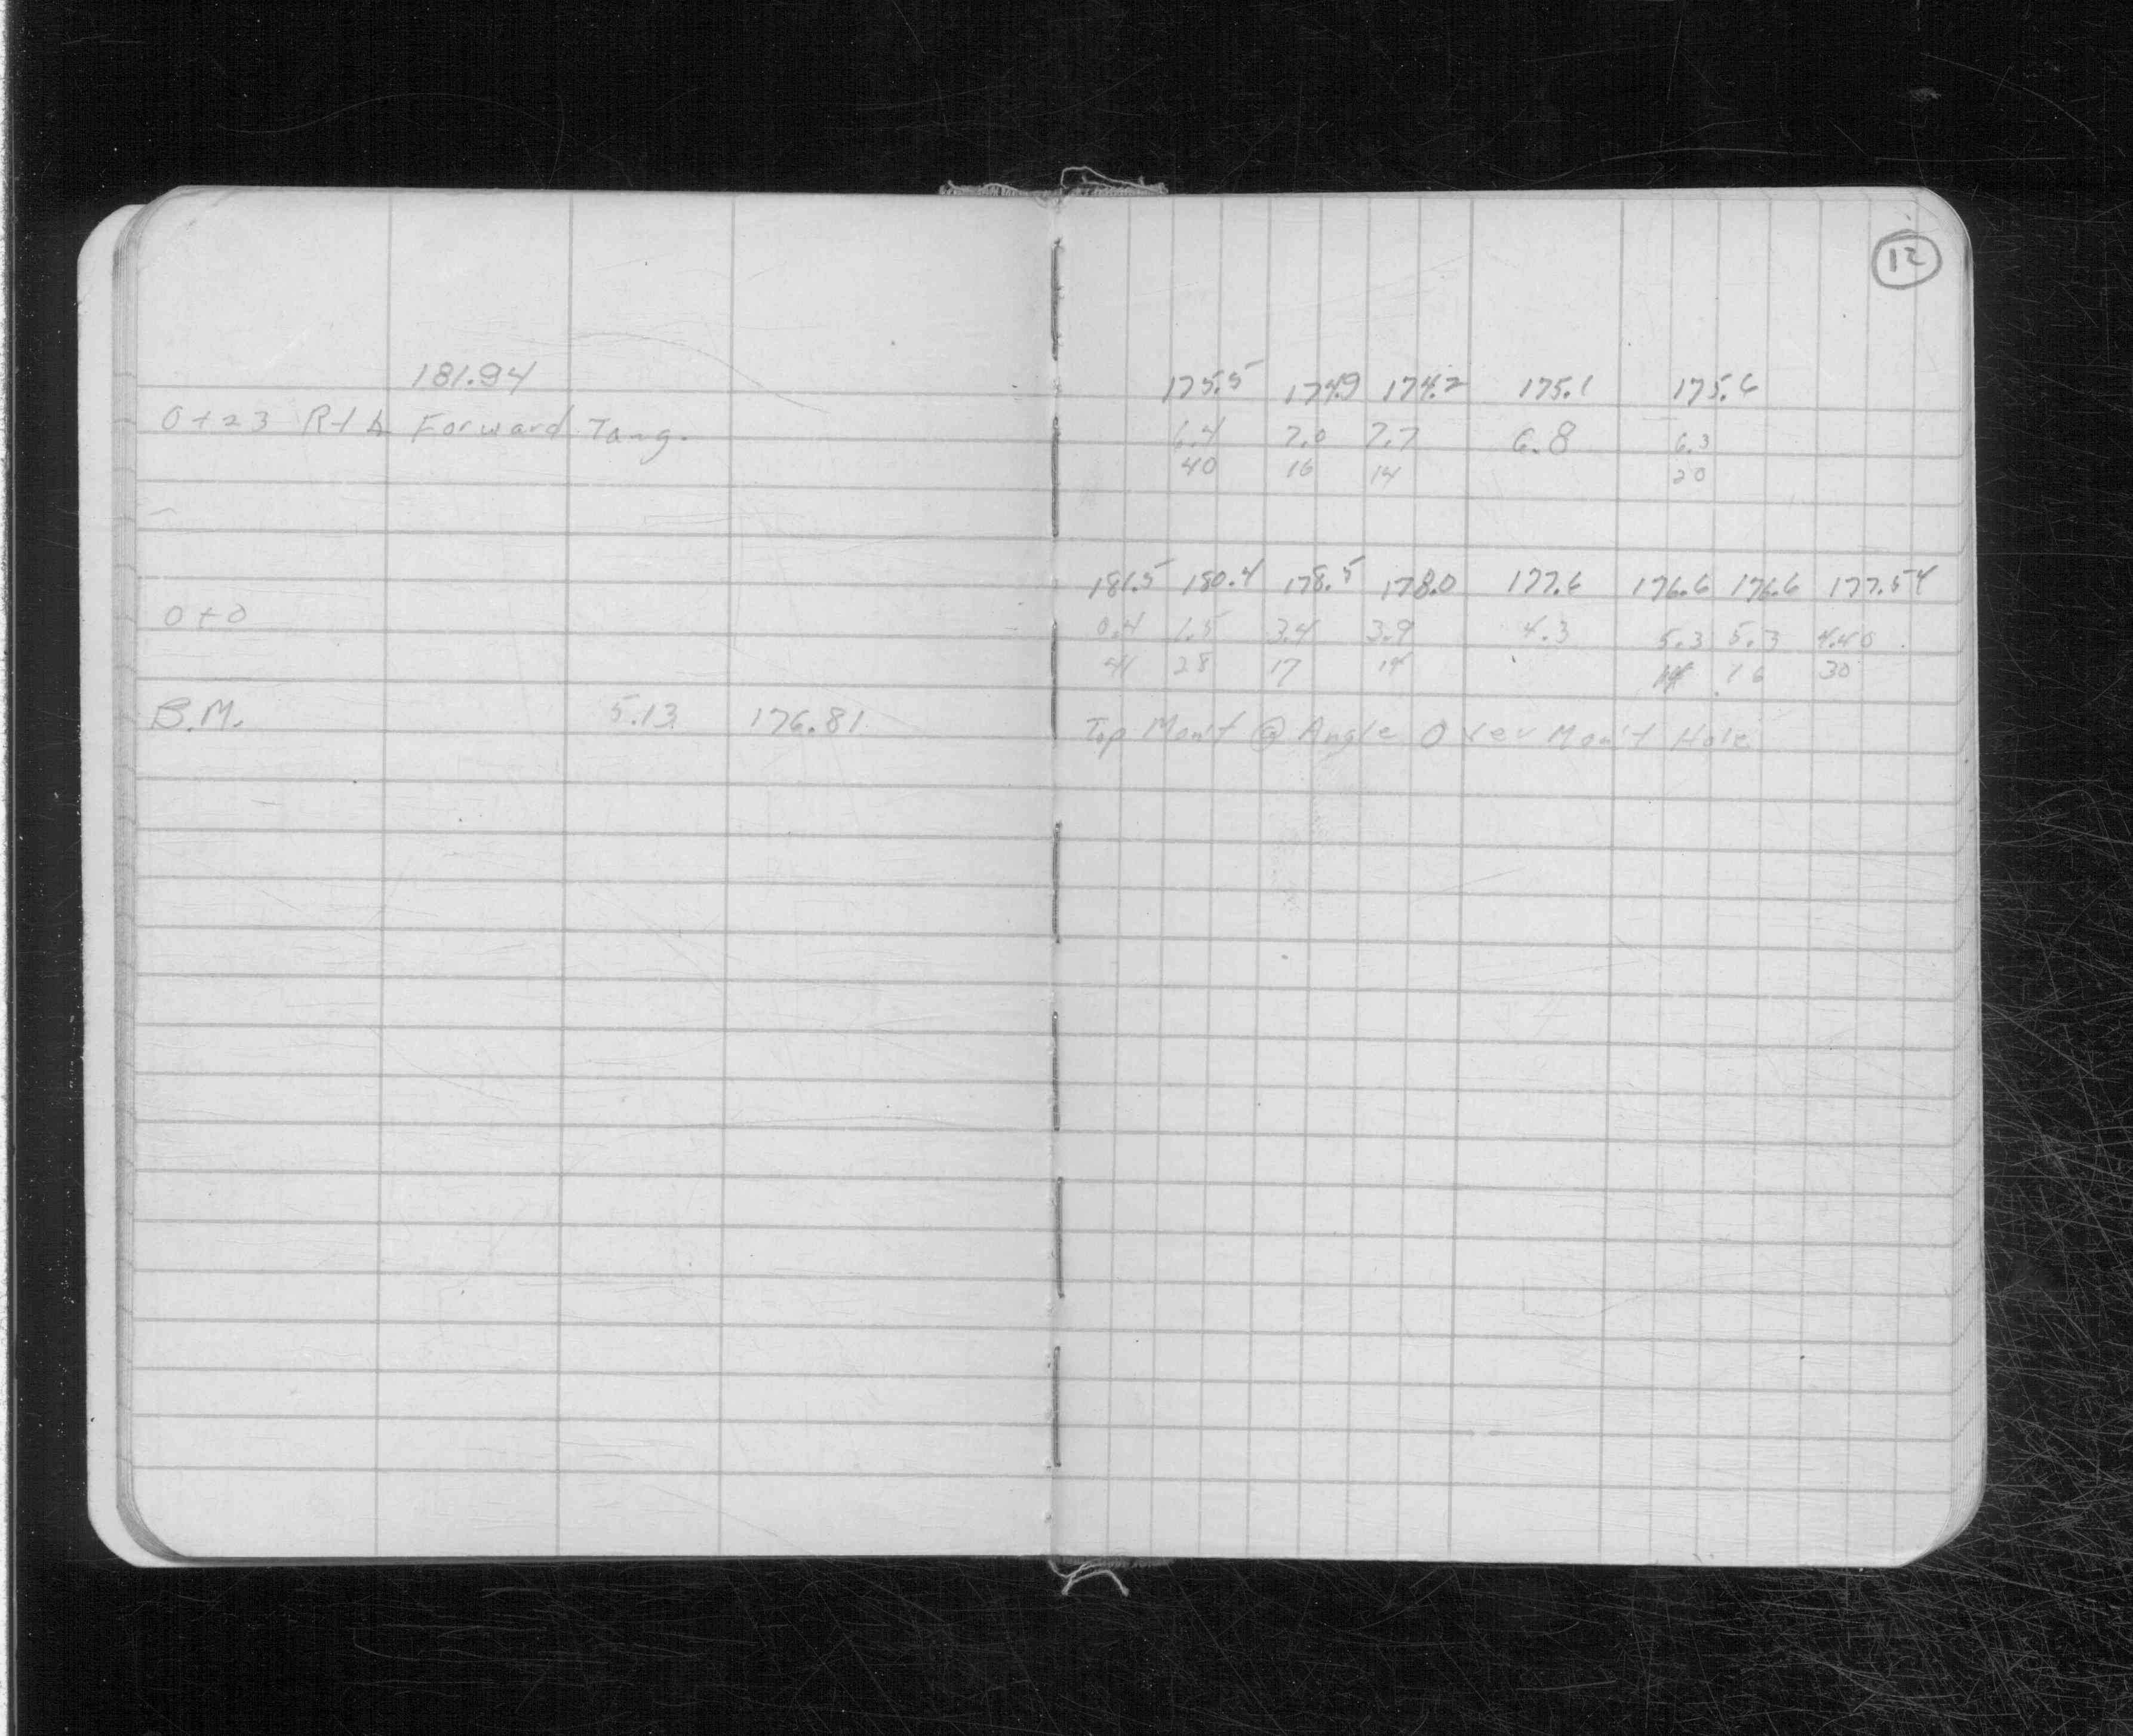 12
181.94
175.5 174.9 174.2 175.1 175.6
0+23 Rt ∠ Forward Tang.
6.4 7.0 7.7 6.8 6.3
40 16 14 20
181.5 180.4 178.5 178.0 177.6 176.6 176.6 177.54
0+0
0.4 1.5 3.4 3.9 4.3 5.3 5.3 4.40
41 28 17 14 14 16 30
B.M. 5.13 176.81
Top Mon't @ Angle Over Mon't Hole